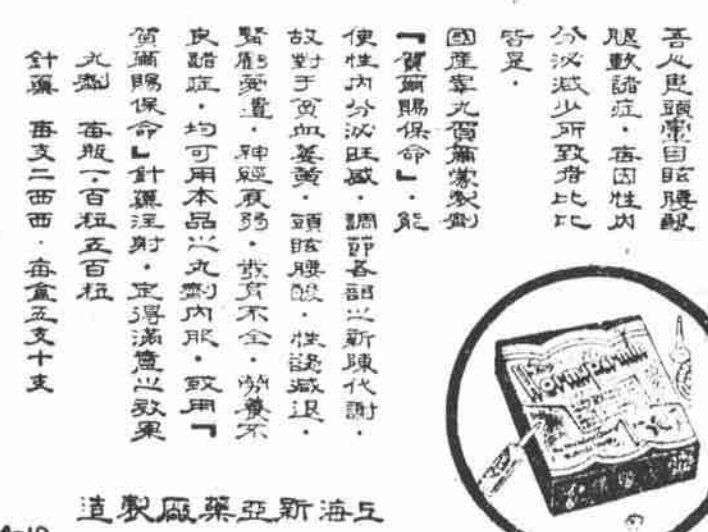 吾人患頭暈目眩腰酸
腿軟諸症·每因性內
分泌減少所致者比比
皆是·
國產睾丸賀爾蒙製劑
『賀爾賜保命』·能
使性內分泌旺盛·調節各部之新陳代謝·
故對于貧血萎黃·頭眩腰酸·性慾減退·
腎虧憂遺·神經衰弱·發育不全·營養不
良諸症·均可用本品之丸劑內服·或用『
賀爾賜保命』針藥注射·定得滿意之效果
丸劑 每瓶一百粒五百粒
針藥 每支二西西·每盒五支十支
上海新亞藥廠製造